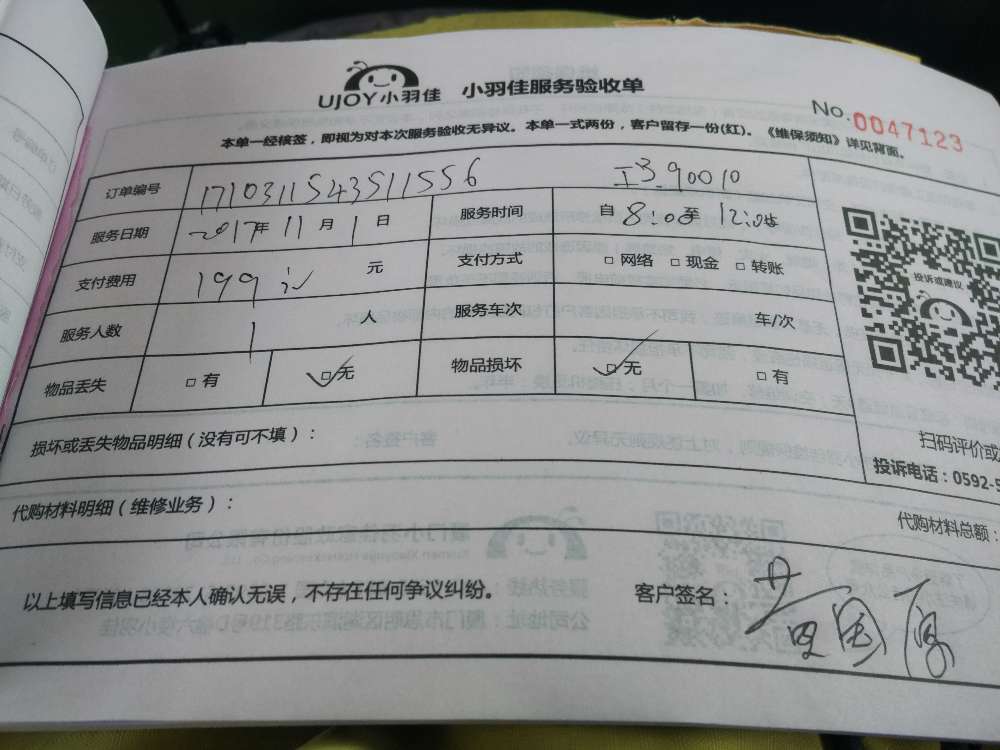 UJOY小羽佳 小羽佳服务验收单
No.0047123
本单一经核签，即视为对本次服务验收无异议。本单一式两份，客户留存一份(红)。《维保须知》详见背面。
订单编号 1710311543511556 工390010
服务日期 2017年11月1日 服务时间 自8:00至12:00
支付费用 199 元 支付方式 □网络 □现金 □转账
服务人数 1 人 服务车次 车/次
物品丢失 □有 □无 物品损坏 □无 □有
投诉或建议
损坏或丢失物品明细（没有可不填）：
扫码评价或
投诉电话：0592-5
代购材料明细（维修业务）：
代购材料总额：
以上填写信息已经本人确认无误，不存在任何争议纠纷。 客户签名：